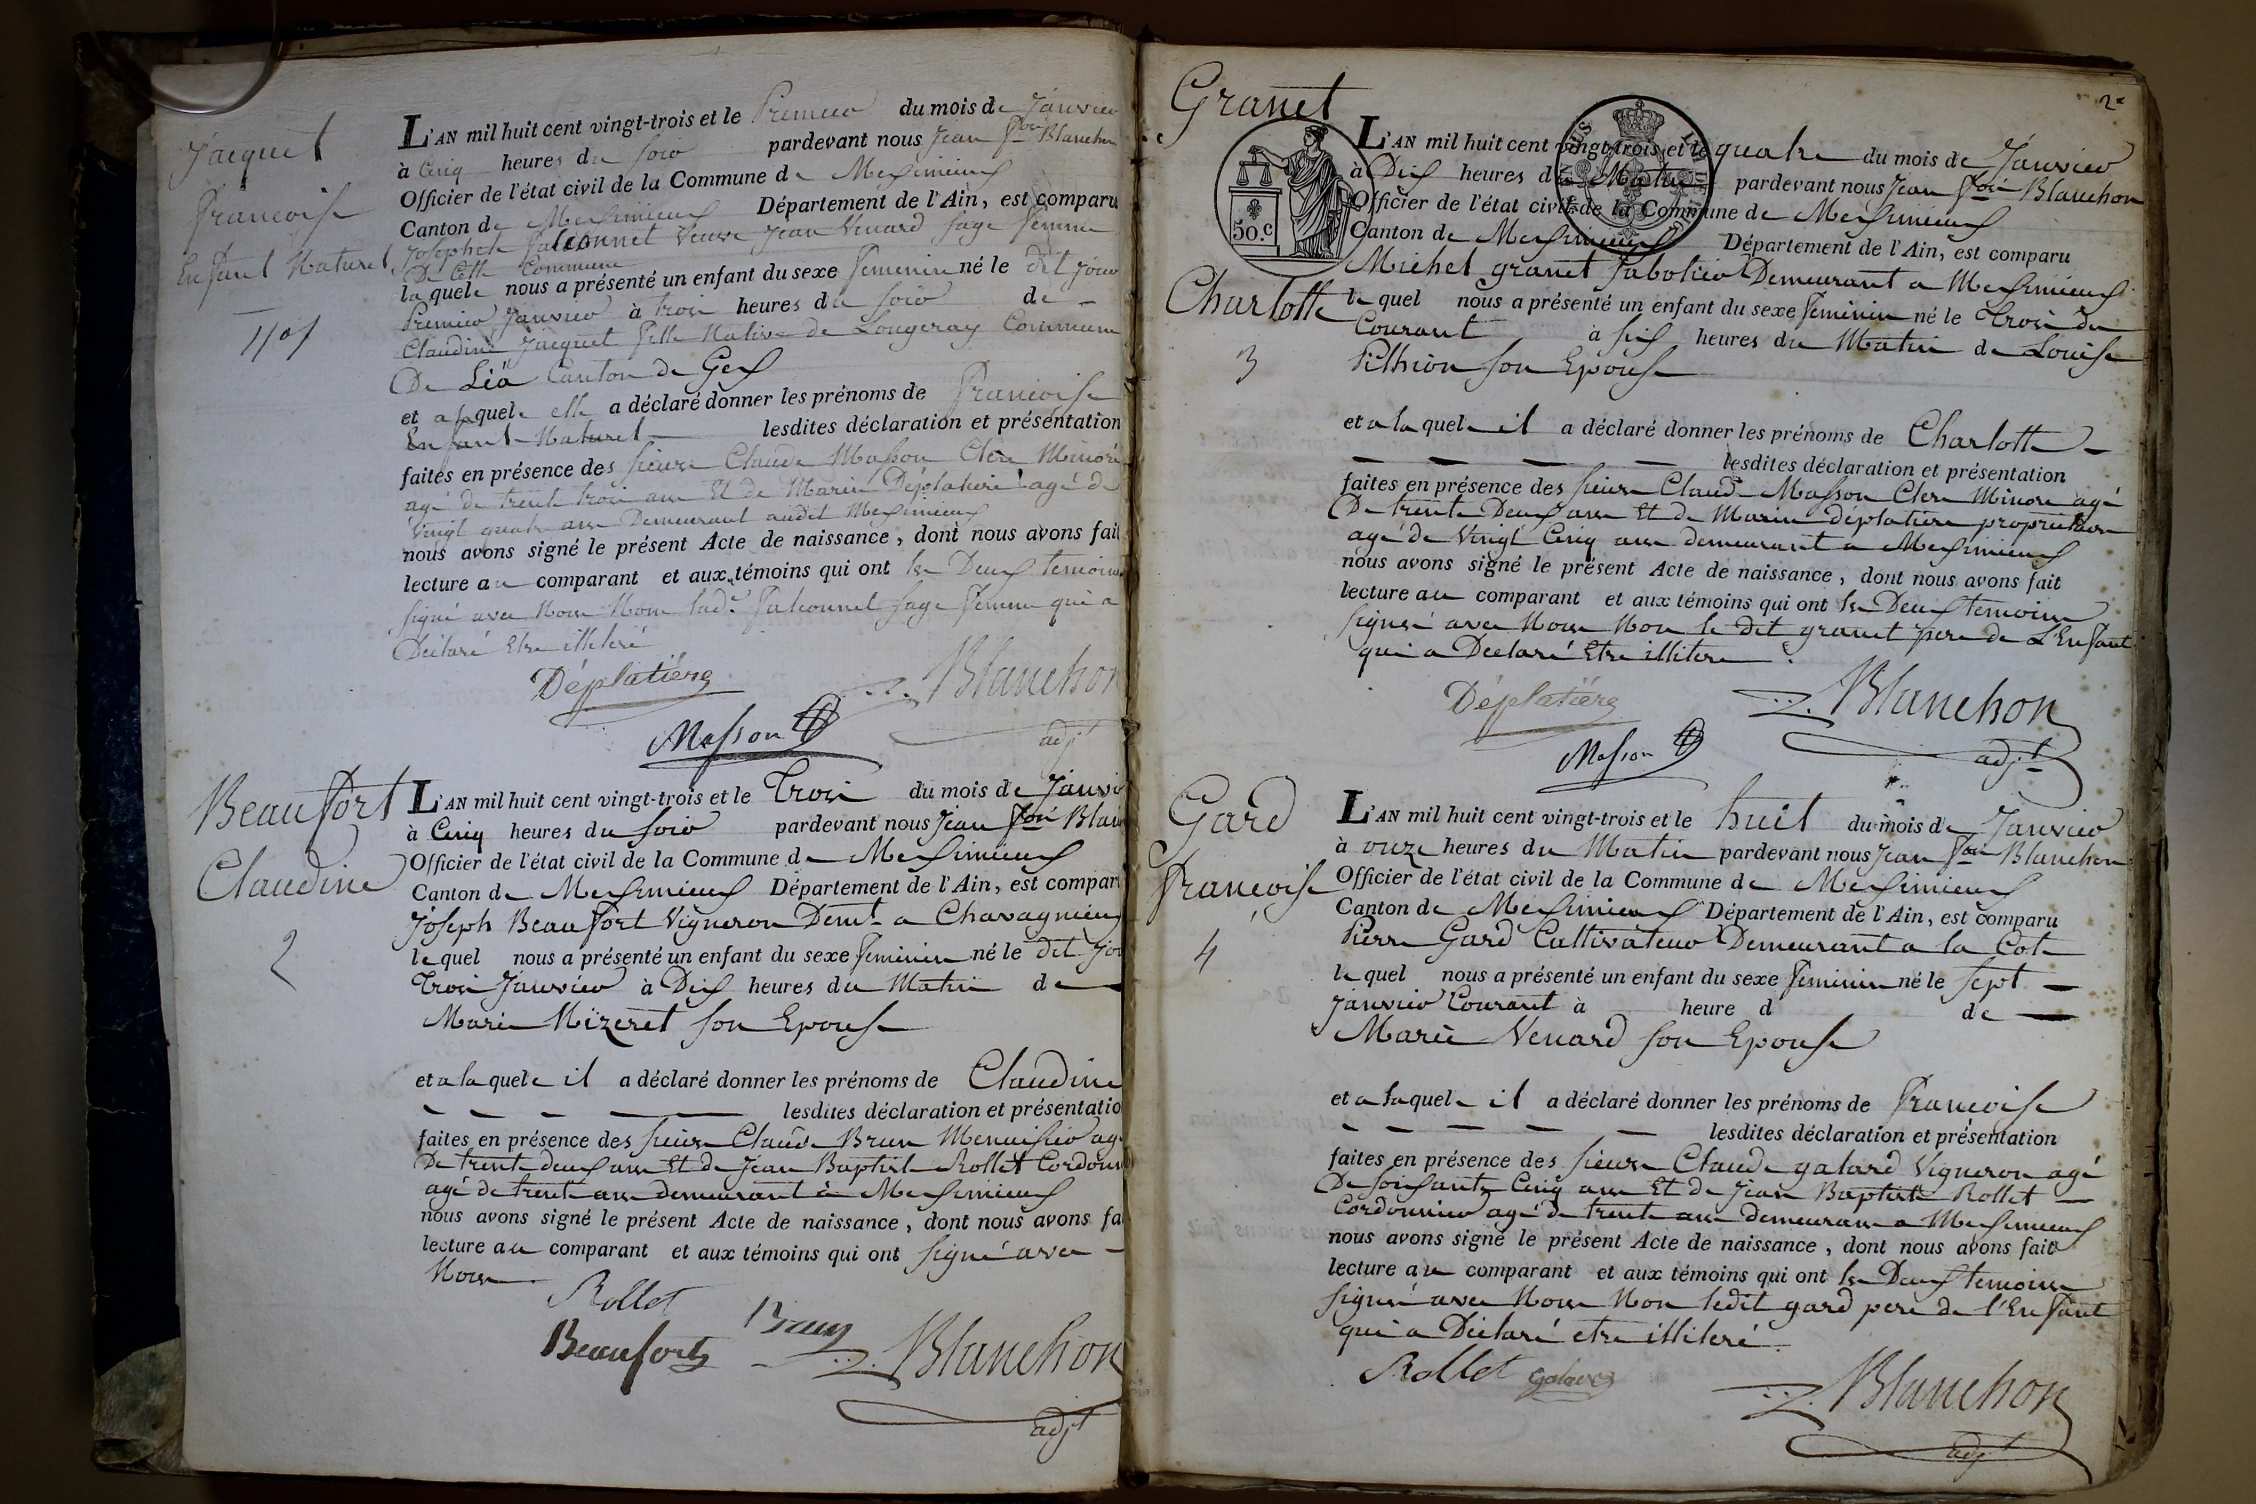 Jacquet
Francoise
Enfant Naturel
L'AN mil huit cent vingt-trois et le Premier du mois de Janvier
à Cinq heures du soir pardevant nous Jean fois Blanchon
Officier de l'état civil de la Commune de Meximieux
Canton de Meximieux Département de l'Ain, est comparu
Josephte falconnet Veuve Jean Venard sage femme
De Cette Commune
laquele nous a présenté un enfant du sexe feminin né le dit jour
Premier Janvier à trois heures du soir de
Claudine Jacquet fille Native de Longeray Commune
De Léa Canton de Gex
et a laquele elle a déclaré donner les prénoms de francoise
Enfant Naturel lesdites déclaration et présentation
faites en présence des sieurs Claude Masson Clerc Minoré
agé de trente trois ans Et de Marin Déplatiere agé de
vingt quatre ans Demeurant audit Meximieux
nous avons signé le présent Acte de naissance, dont nous avons fait
lecture au comparant et aux témoins qui ont les Deux temoins
signé avec Nous Non lade falconnet sage femme qui a
Déclaré Etre illiteré
Déplatiére
Blanchon
Masson
adjt
Beaufort
Claudine
2
L'AN mil huit cent vingt-trois et le Trois du mois de Janvi
à Cinq heures du soir pardevant nous Jean fois Blan
Officier de l'état civil de la Commune de Meximieux
Canton de Meximieux Département de l'Ain, est compar
Joseph Beaufort Vigneron Demt a Chavagnieux
lequel nous a présenté un enfant du sexe feminin né le dit jou
Trois Janvier à Dix heures du Matin de
Marie Mizeret son Epouse
et a laquele il a déclaré donner les prénoms de Claudine
lesdites déclaration et présentatio
faites en présence des sieurs Claude Brun Menuisier ag
De trente deux ans Et de Jean Baptiste Rollet Cordonn
agé de trente ans demeurant à Meximieux
nous avons signé le présent Acte de naissance, dont nous avons fa
lecture au comparant et aux témoins qui ont signé avec
Nous
Rollet
Brun
Beaufort
Blanchon
adjt
2e
Granet
Charlotte
3
50.c
L'AN mil huit cent vingt-trois et le quatre du mois de Janvier
à Dix heures du Matin pardevant nous Jean fois Blanchon
Officier de l'état civil de la Commune de Meximieux
Canton de Meximieux Département de l'Ain, est comparu
Michel granet Sabotier Demeurant a Meximieux
lequel nous a présenté un enfant du sexe feminin né le Trois du
Courant à six heures du Matin de Louise
Pithion son Epouse
et a laquele il a déclaré donner les prénoms de Charlotte
lesdites déclaration et présentation
faites en présence des sieurs Claude Masson Clerc Minoré agé
De trente Deux ans Et de Marin déplatiere proprietaire
agé de Vingt Cinq ans demeurant a Meximieux
nous avons signé le présent Acte de naissance, dont nous avons fait
lecture au comparant et aux témoins qui ont les Deux temoins
signé avec Nous Non le dit granet pere de L'Enfant
qui a Declaré Etre illitere
Déplatiére
Blanchon
Masson
adjt
Gard
Francoise
4
L'AN mil huit cent vingt-trois et le huit du mois de Janvier
à onze heures du Matin pardevant nous Jean fois Blanchon
Officier de l'état civil de la Commune de Meximieux
Canton de Meximieux Département de l'Ain, est comparu
Pierre Gard Cultivateur Demeurant a la Cote
lequel nous a présenté un enfant du sexe feminin né le sept
Janvier Courant à heure d de
Marie Venard son Epouse
et a laquele il a déclaré donner les prénoms de francoise
lesdites déclaration et présentation
faites en présence des sieurs Claude galard Vigneron agé
De soixante Cinq ans Et de Jean Baptiste Rollet
Cordonnier agé de trente ans demeurans a Meximieux
nous avons signé le présent Acte de naissance, dont nous avons fait
lecture au comparant et aux témoins qui ont les Deux temoins
signé avec Nous Non ledit gard pere de l'Enfant
qui a Déclaré etre illiteré
Rollet
Blanchon
adjt